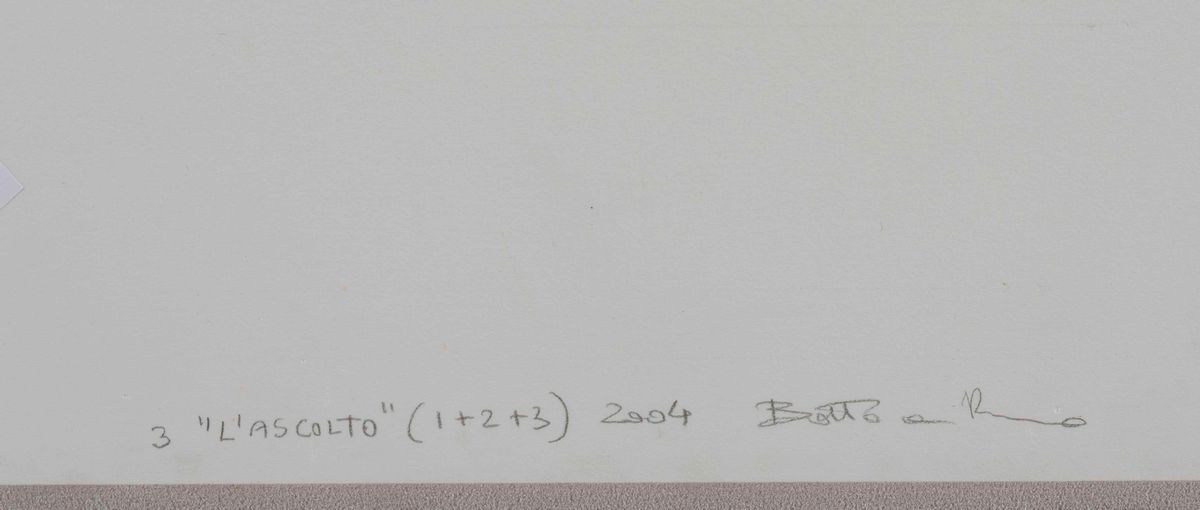 3 "L'ASCOLTO" (1+2+3) 2004 Botto e Bruno